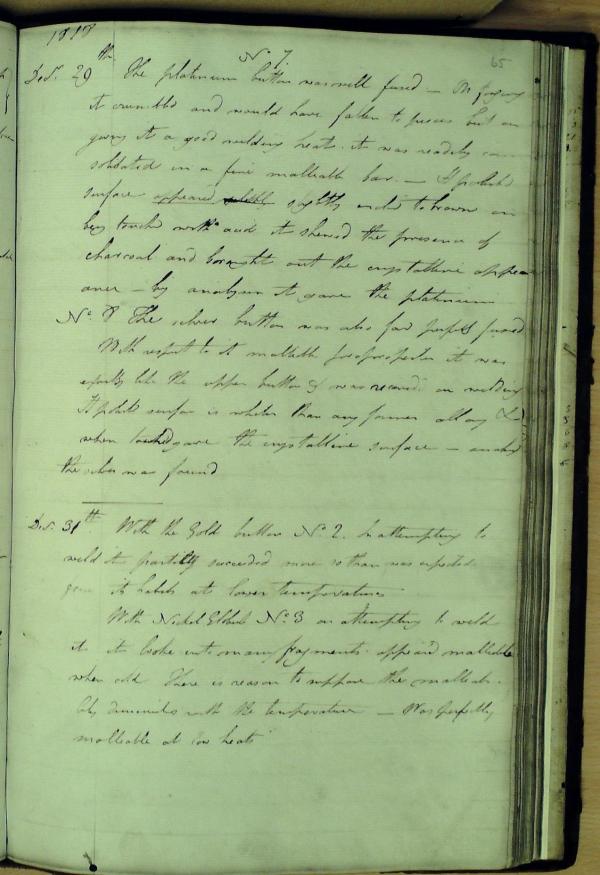 1818
65
No 7
Decr. 29th The platinum button was well fused — On forging
it crumbled and would have fallen to pieces but on
giving it a good welding heat it was readily con
solidated in a fine malleable bar — Its polished
surface appeared slightly
being touched with acid it shewed the presence of
charcoal and brought out the crystalline appear
ance — by analysis it gave the platinum
No. 8 The silver button was also fused
With respect to its malleable properties it was
exactly like the upper button & was on welding
Its polished surface is whiter than any former alloy &
when touched gave the crystalline surface — analysed
the silver was found
Decr. 31st With the Gold button No 2. In attempting to
weld it partially succeeded more so than was expected
from its habits at lower temperatures
With Nickel No 3 on attempting to weld
it it broke into many fragments appeared malleable
when cold There is reason to suppose the malleabi-
lity diminishes with the temperature — Was perfectly
malleable at low heats